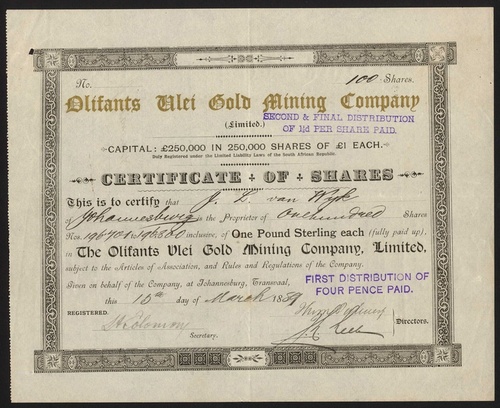 No. 100 Shares.
Olifants Vlei Gold Mining Company
(Limited.)
SECOND & FINAL DISTRIBUTION
OF 1½d PER SHARE PAID.
CAPITAL: £250,000 IN 250,000 SHARES OF £1 EACH.
Duly Registered under the Limited Liability Laws of the South African Republic.
CERTIFICATE OF SHARES
This is to certify that J. L. van Wyk
of Johannesburg is the Proprietor of One hundred Shares
Nos. 196701 to 196800 inclusive, of One Pound Sterling each (fully paid up), in
The Olifants Vlei Gold Mining Company, Limited,
subject to the Articles of Association, and Rules and Regulations of the Company.
Given on behalf of the Company, at Johannesburg, Transvaal,
this 10th day of March 1889
FIRST DISTRIBUTION OF
FOUR PENCE PAID.
REGISTERED.
Solomon
Secretary.
Directors.